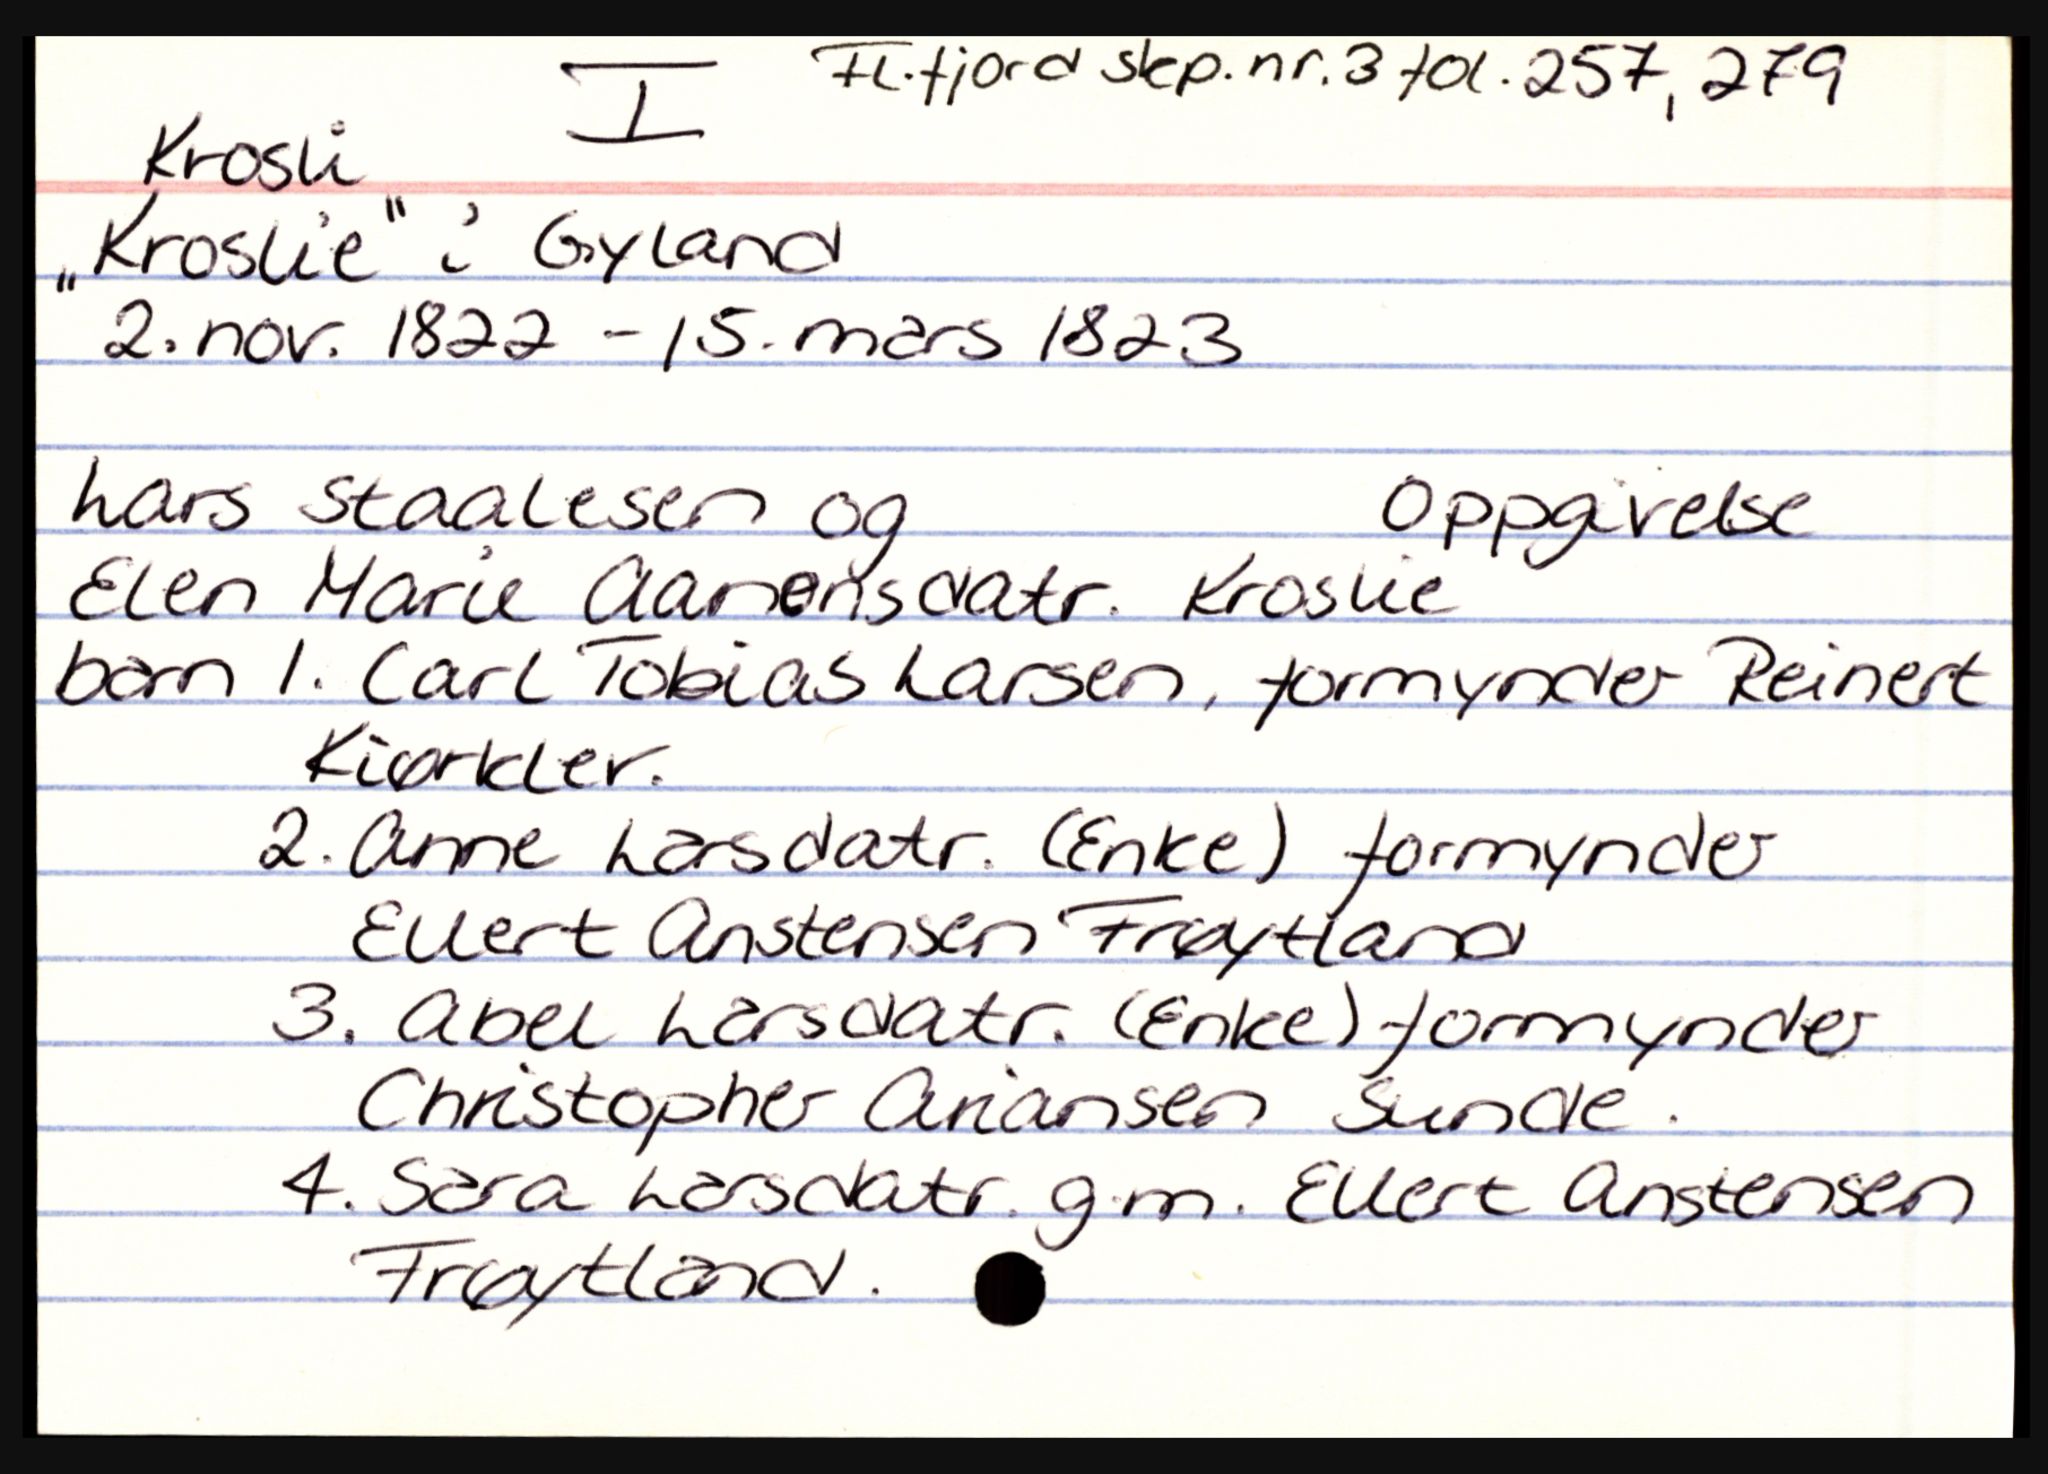 I Fl.fjord skp.nr.3 fol. 257, 279
Krosli
„Kroslie" i Gyland
2. nov. 1822 - 15. mars 1823
Lars Staalesen og Oppgivelse
Elen Marie Aanonsdatr. Kroslie
barn 1. Carl Tobias Larsen, formynder Reinert
Kiørklev.
2. Anne Larsdatr. (Enke) formynder
Ellert Anstensen Frøytland
3. Abel Larsdatr. (Enke) formynder
Christopher Ariansen Sunde.
4. Sara Larsdatr. g.m. Ellert Anstensen
Frøytland.